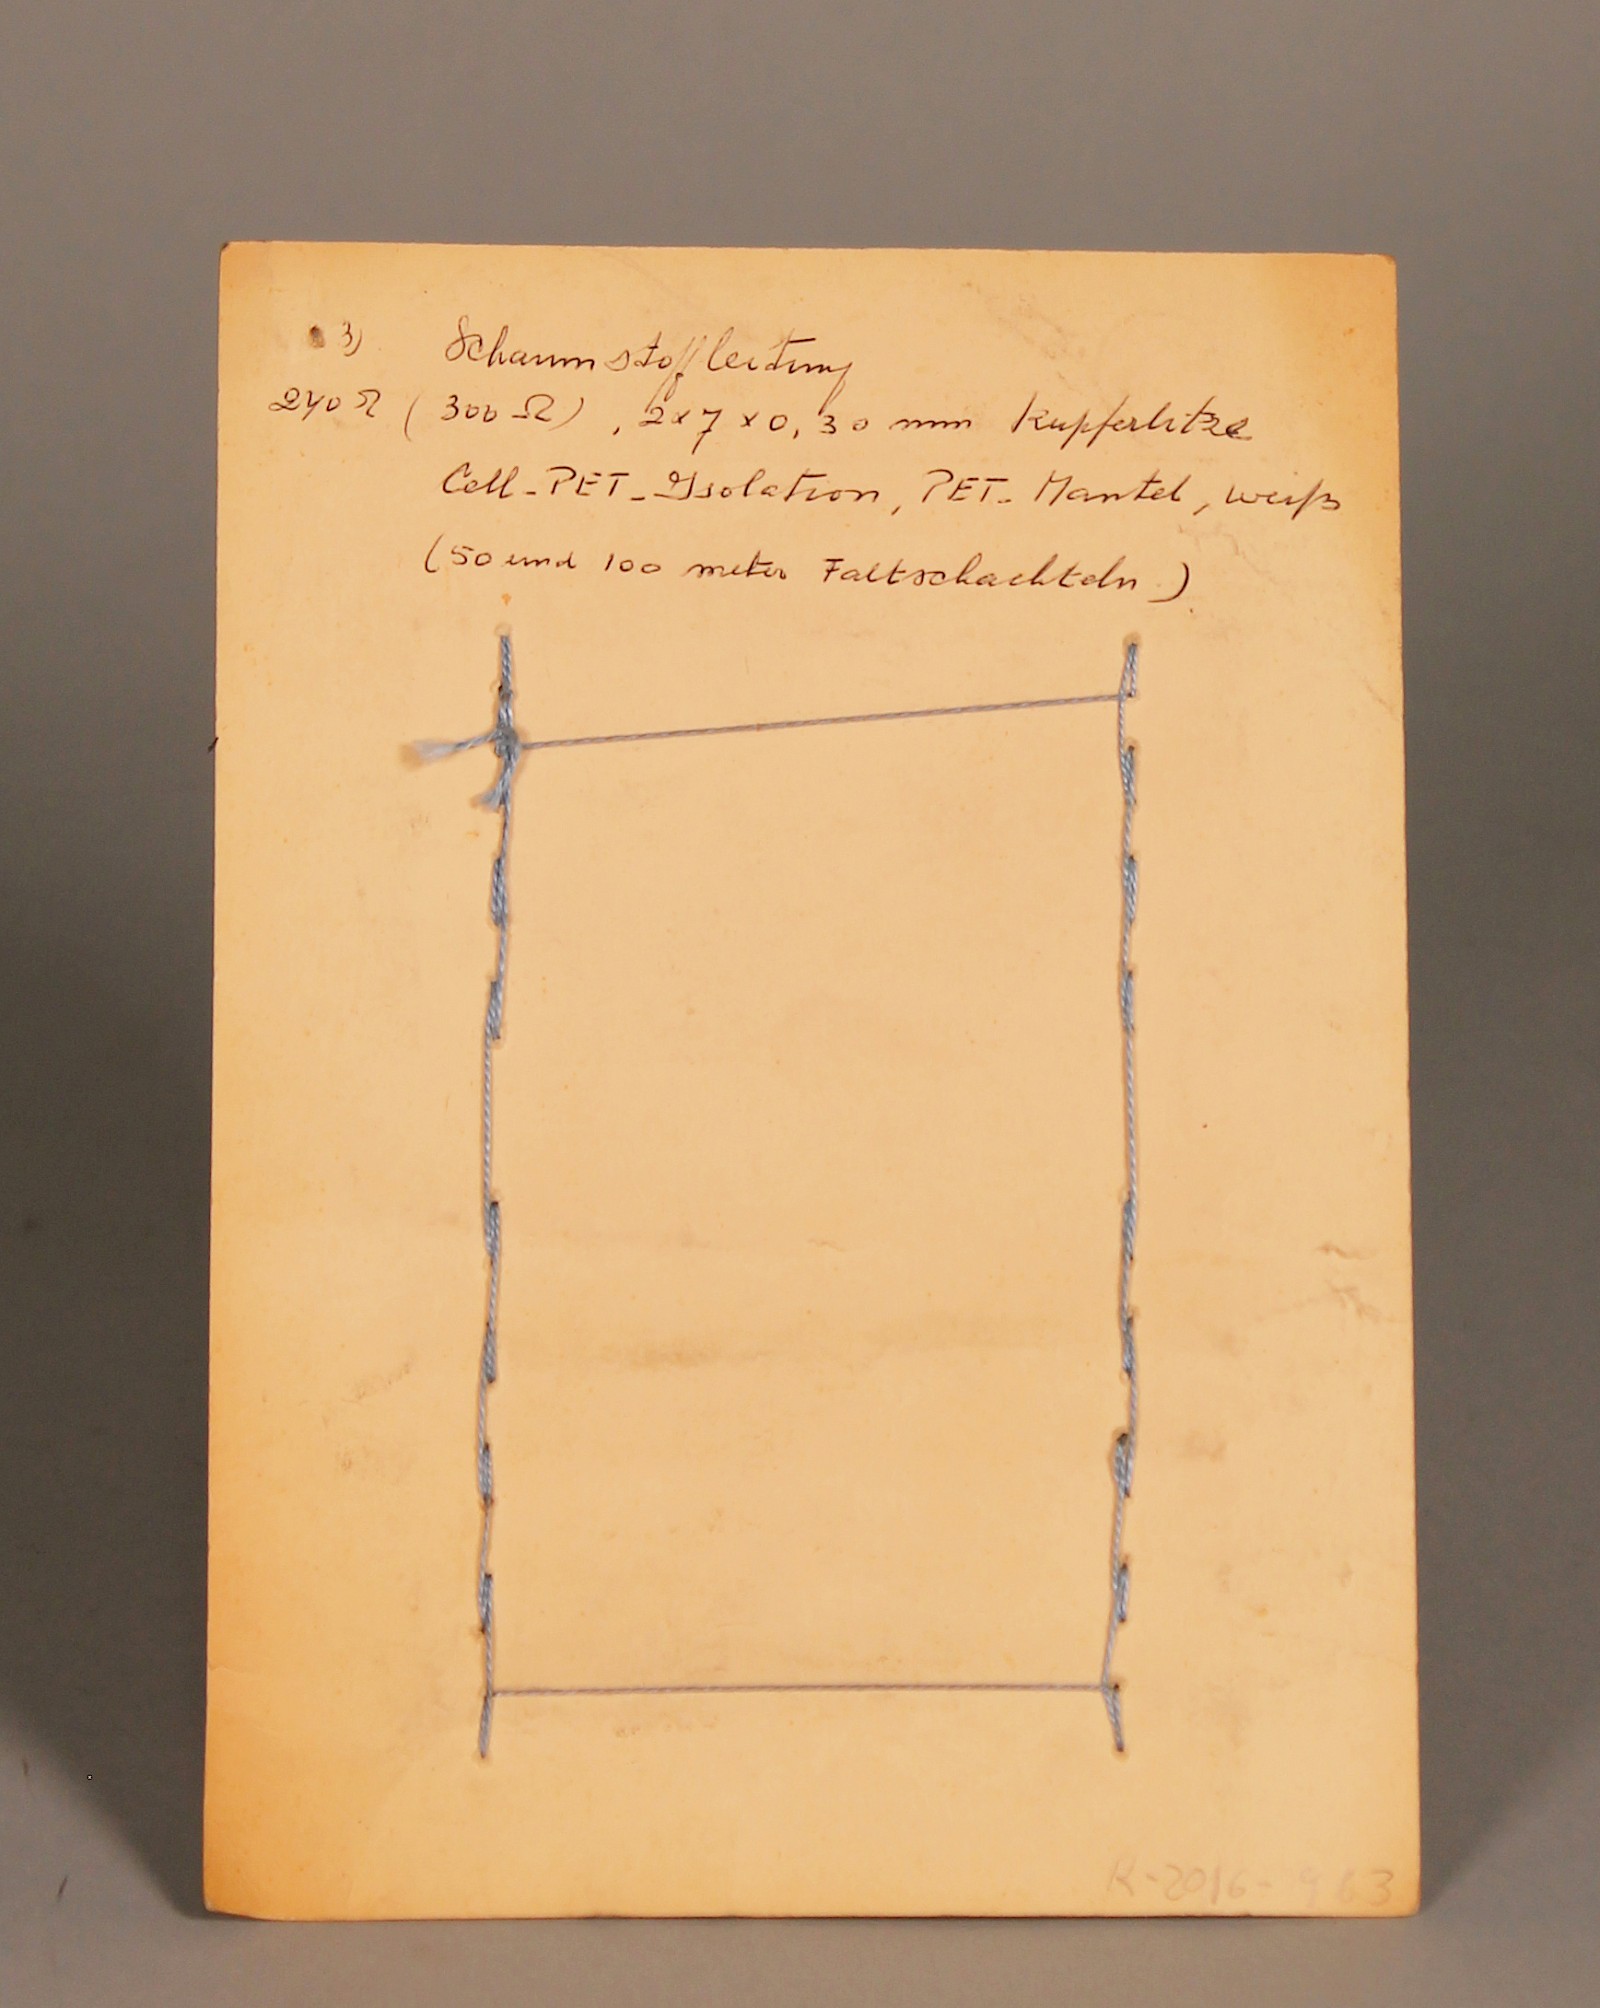 3) Schaumstoffleitung
240 Ω (300 Ω), 2x7x0,30 mm Kupferlitze
Cell-PET-Isolation, PET-Mantel, weiß
(50 und 100 meter Faltschachteln)